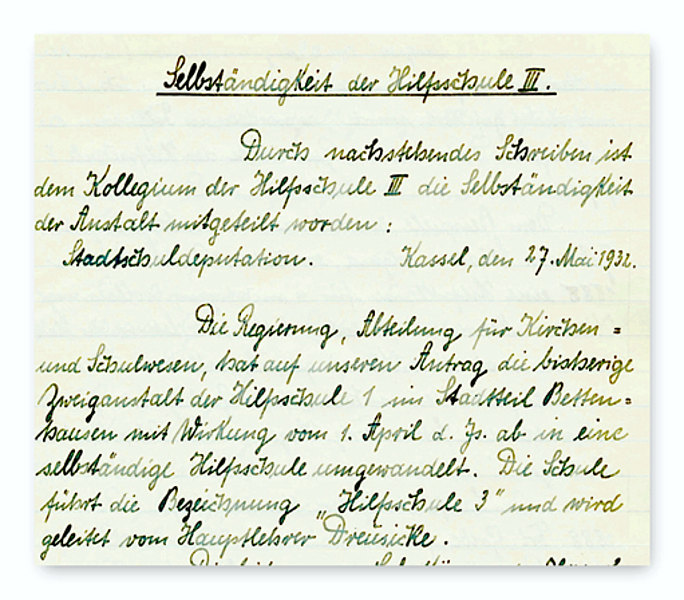 Selbständigkeit der Hilfsschule III.
Durch nachstehendes Schreiben ist
dem Kollegium der Hilfsschule III die Selbständigkeit
der Anstalt mitgeteilt worden:
Stadtschuldeputation. Kassel, den 27. Mai 1932.
Die Regierung, Abteilung für Kirchen=
und Schulwesen, hat auf unseren Antrag die bisherige
Zweiganstalt der Hilfsschule 1 im Stadtteil Betten=
hausen mit Wirkung vom 1. April d. Js. ab in eine
selbständige Hilfsschule umgewandelt. Die Schule
führt die Bezeichnung „Hilfsschule 3" und wird
geleitet vom Hauptlehrer Dreusicke.